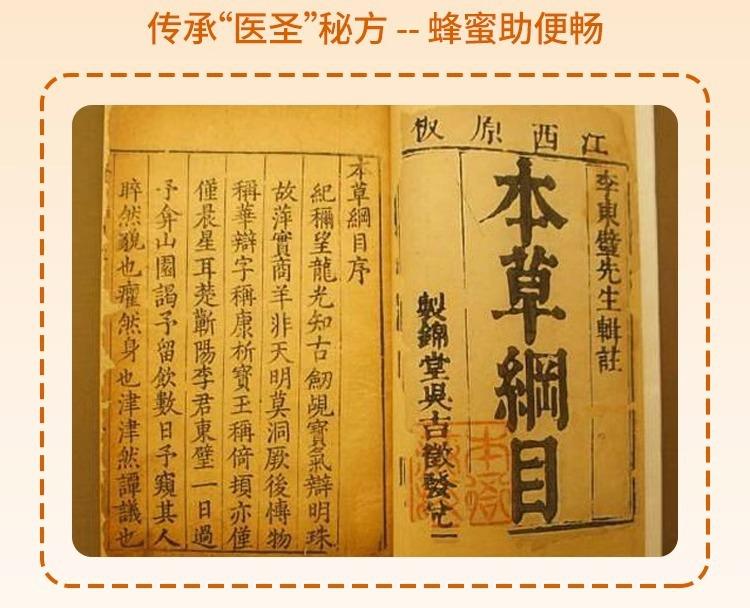 传承“医圣”秘方 -- 蜂蜜助便畅
江西原板
李東璧先生輯註
本草綱目
製錦堂吳吉徵發兌
本草綱目序
紀稱望龍光知古劒覘寶氣辯明珠
故萍實商羊非天明莫洞厥後愽物
稱華辯字稱康析寶玉稱倚頓亦僅
僅晨星耳楚蘄陽李君東璧一日過
予弇山園謁予留飲數日予窺其人
睟然貌也癯然身也津津然譚議也